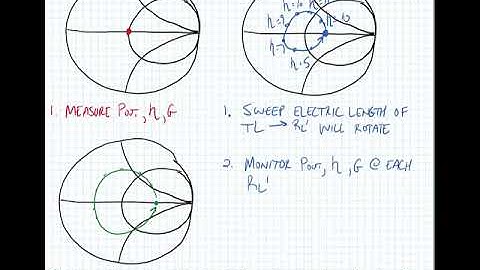 η=6
η=5
1. MEASURE POUT, η, G
1. SWEEP ELECTRIC LENGTH OF
TL → RL' WILL ROTATE
2. MONITOR POUT, η, G @ EACH
RL'